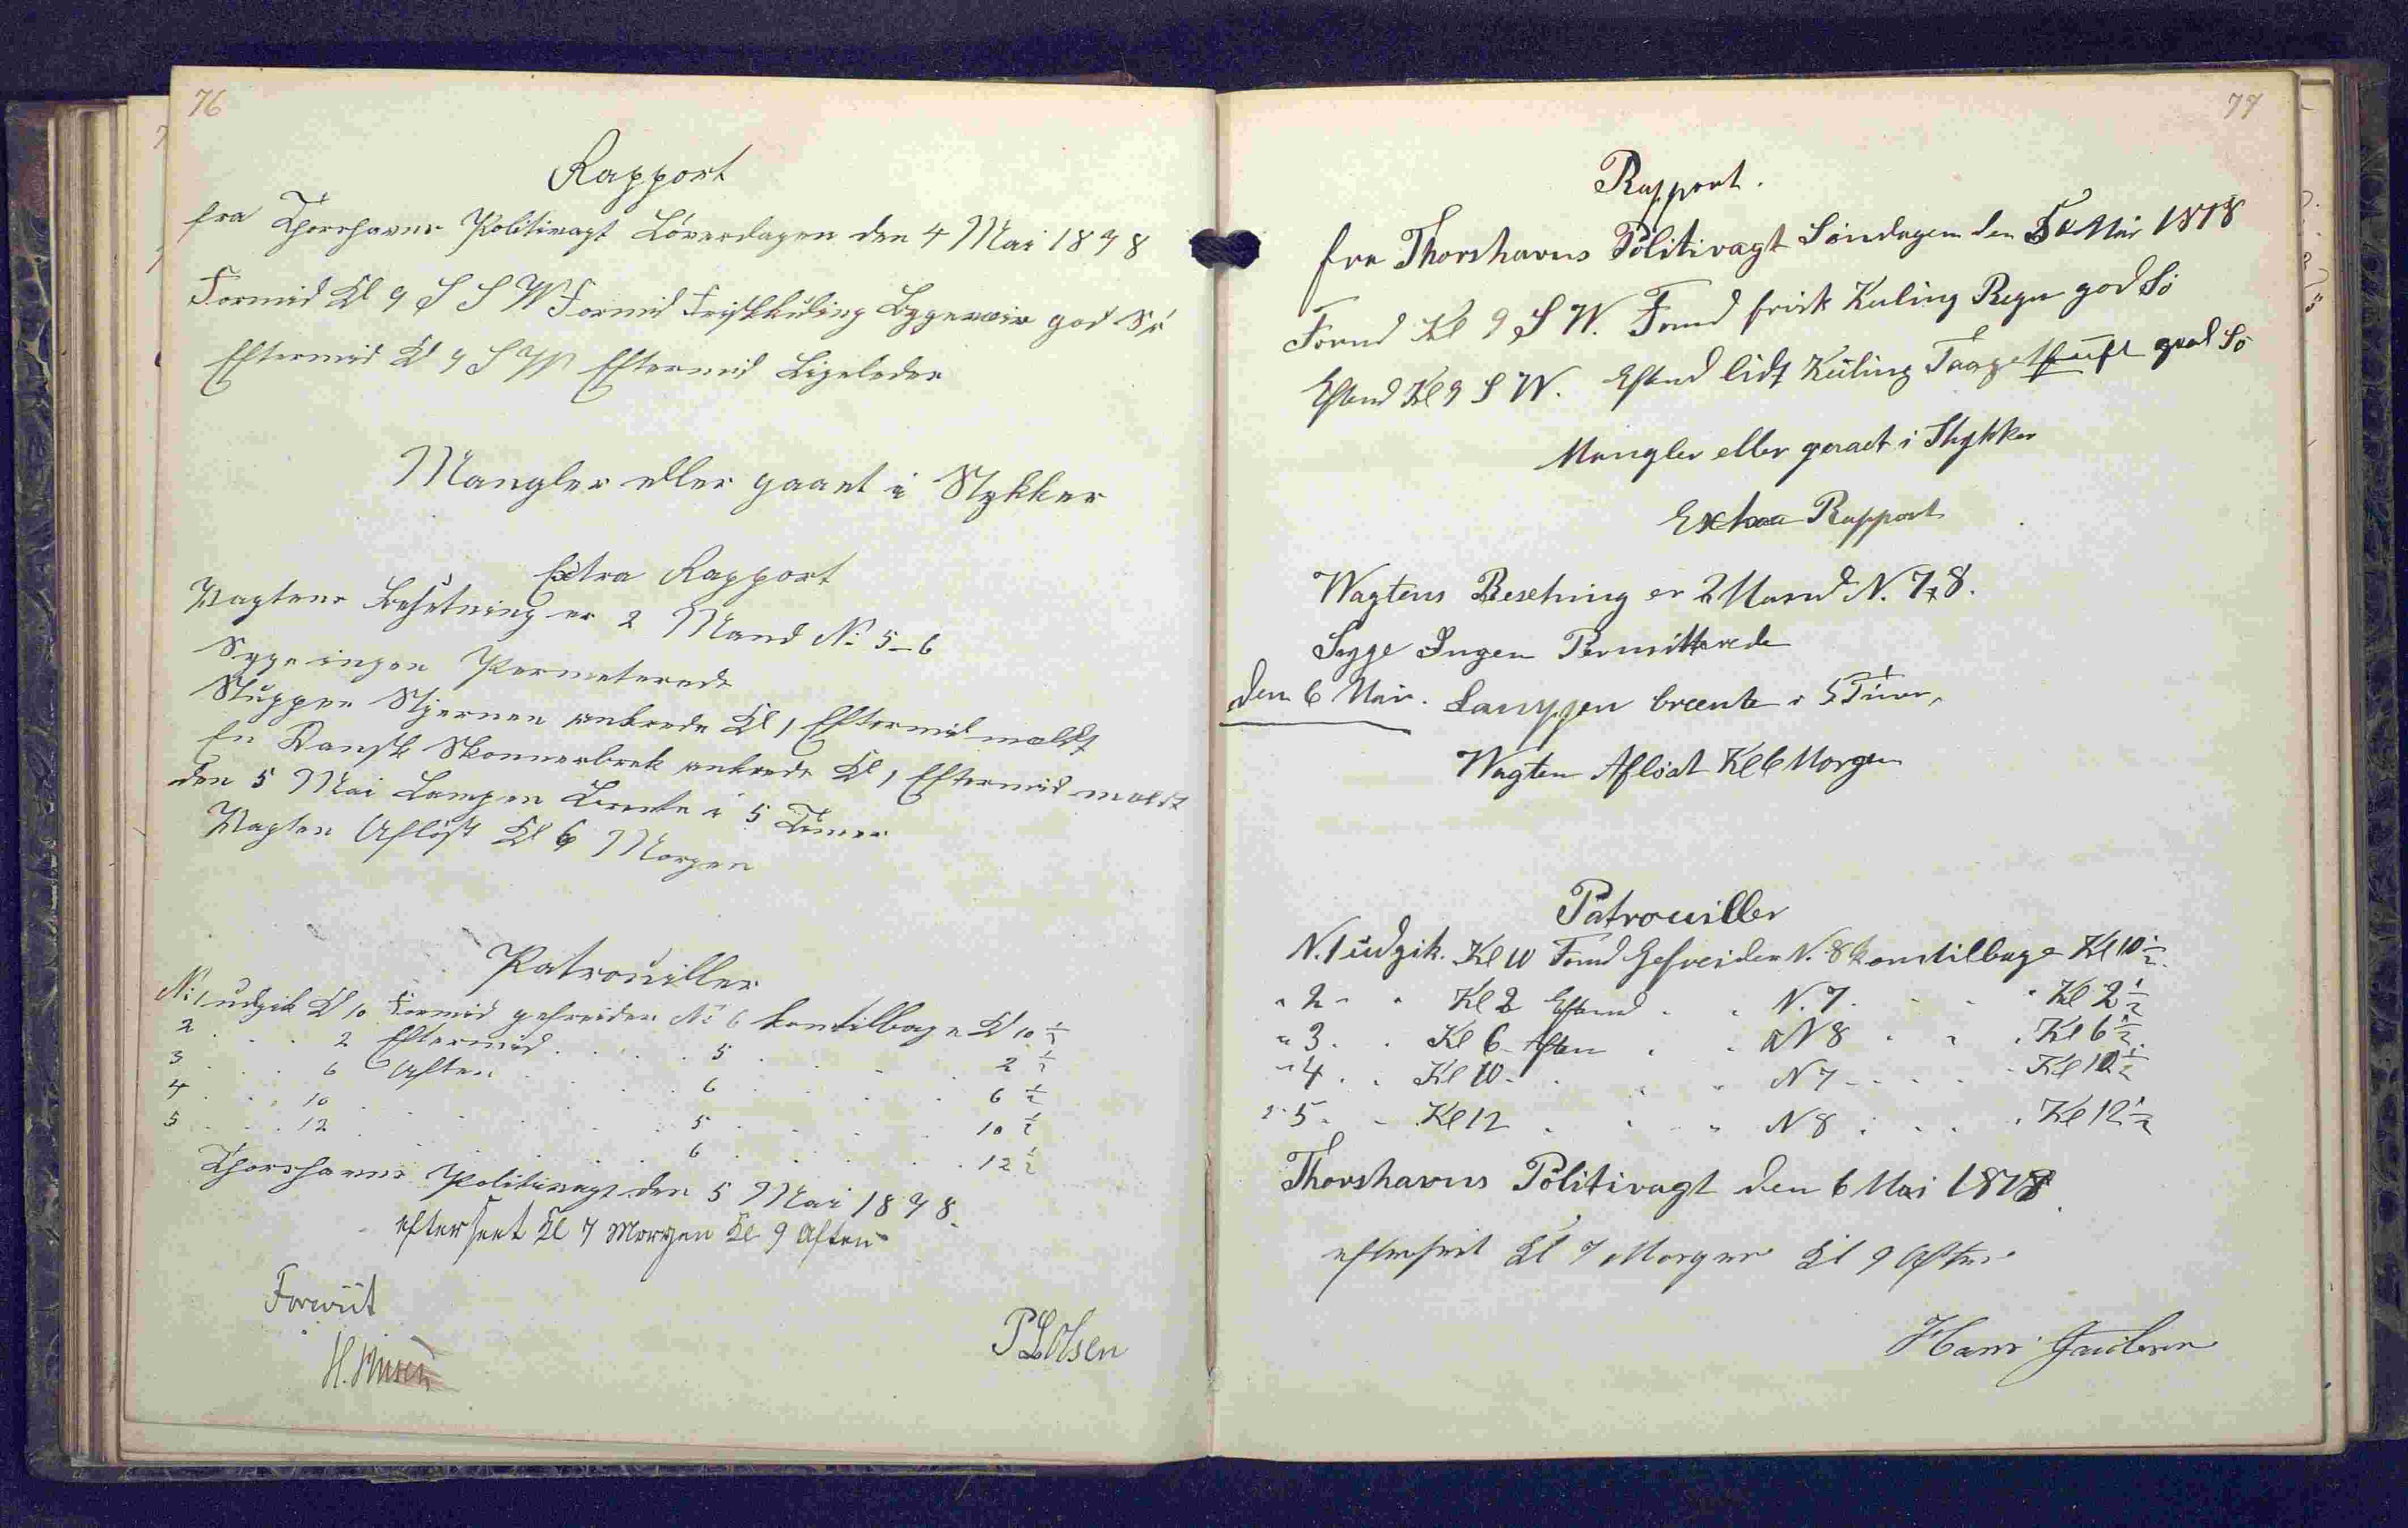 76
Rapport
fra Thorshavns Politivagt Löverdagen den 4 Mai 1878
Formid Kl 9 S S W Formid Friskkuling Bygeveir god Sö
Eftermid Kl 9 S W Eftermid Ligeledes
Mangler eller gaaet i Stykker
Extra Rapport
Vagtens Besetning er 2 Mand No 5-6
Syge ingen Permeterede
Sluppen Stjernen ankrede Kl 1 Eftermid meldt
En Dansk Skonnerbrek ankrede Kl 1 Eftermid meldt
den 5 Mai Lampen Brente i 5 Timer
Vagten Aflöst Kl 6 Morgen
Patrouiller
No 1 udgik Kl 10 Formid gefreider No 6 komtilbage Kl 10 1/2
2 . . . 2 Eftermid . . . . 5 . . . . 2 1/2
3 . . . 6 Aften . . . . 6 . . . . 6 1/2
4 . . . 10 . . . . . 5 . . . . 10 1/2
5 . . . 12 . . . . . 6 . . . . 12 1/2
Thorshavns Politivagt den 5 Mai 1878.
efterseet Kl 7 Morgen Kl 9 Aften
Forevist
P L Olsen
77
Rapport.
fra Thorshavns Politivagt Söndagen den 5 Mai 1878
Formd Kl 9 S W. Formd frisk Kuling Regn god Sö
Eftmd Kl 9 S W. Eftmd lidt Kuling Taagetluft god Sö
Mangler eller gaaet i Stykker
Extra Rapport
Wagtens Besetning er 2 Mand N. 7 & 8.
Syge Ingen Permitterede
den 6 Mai. Lamppen breente i 5 Timer,
Wagten Aflöst Kl 6 Morgen
Patrouiller
N. 1 udgik. Kl 10 Formd Gefreider N. 8 komtilbage Kl 10 1/2.
" 2 " " Kl 2 Eftmd . . N. 7. . . " Kl 2 1/2
" 3. . Kl 6 Aften . . N 8 . . . Kl 6 1/2.
" 4 . . Kl 10 . . " N 7 . . . . Kl 10 1/2
" 5 . . Kl 12 . . " N 8 . . . . Kl 12 1/2
Thorshavns Politivagt den 6 Mai 1878.
efterseet Kl 7 Morgen Kl 9 Aften
Hans